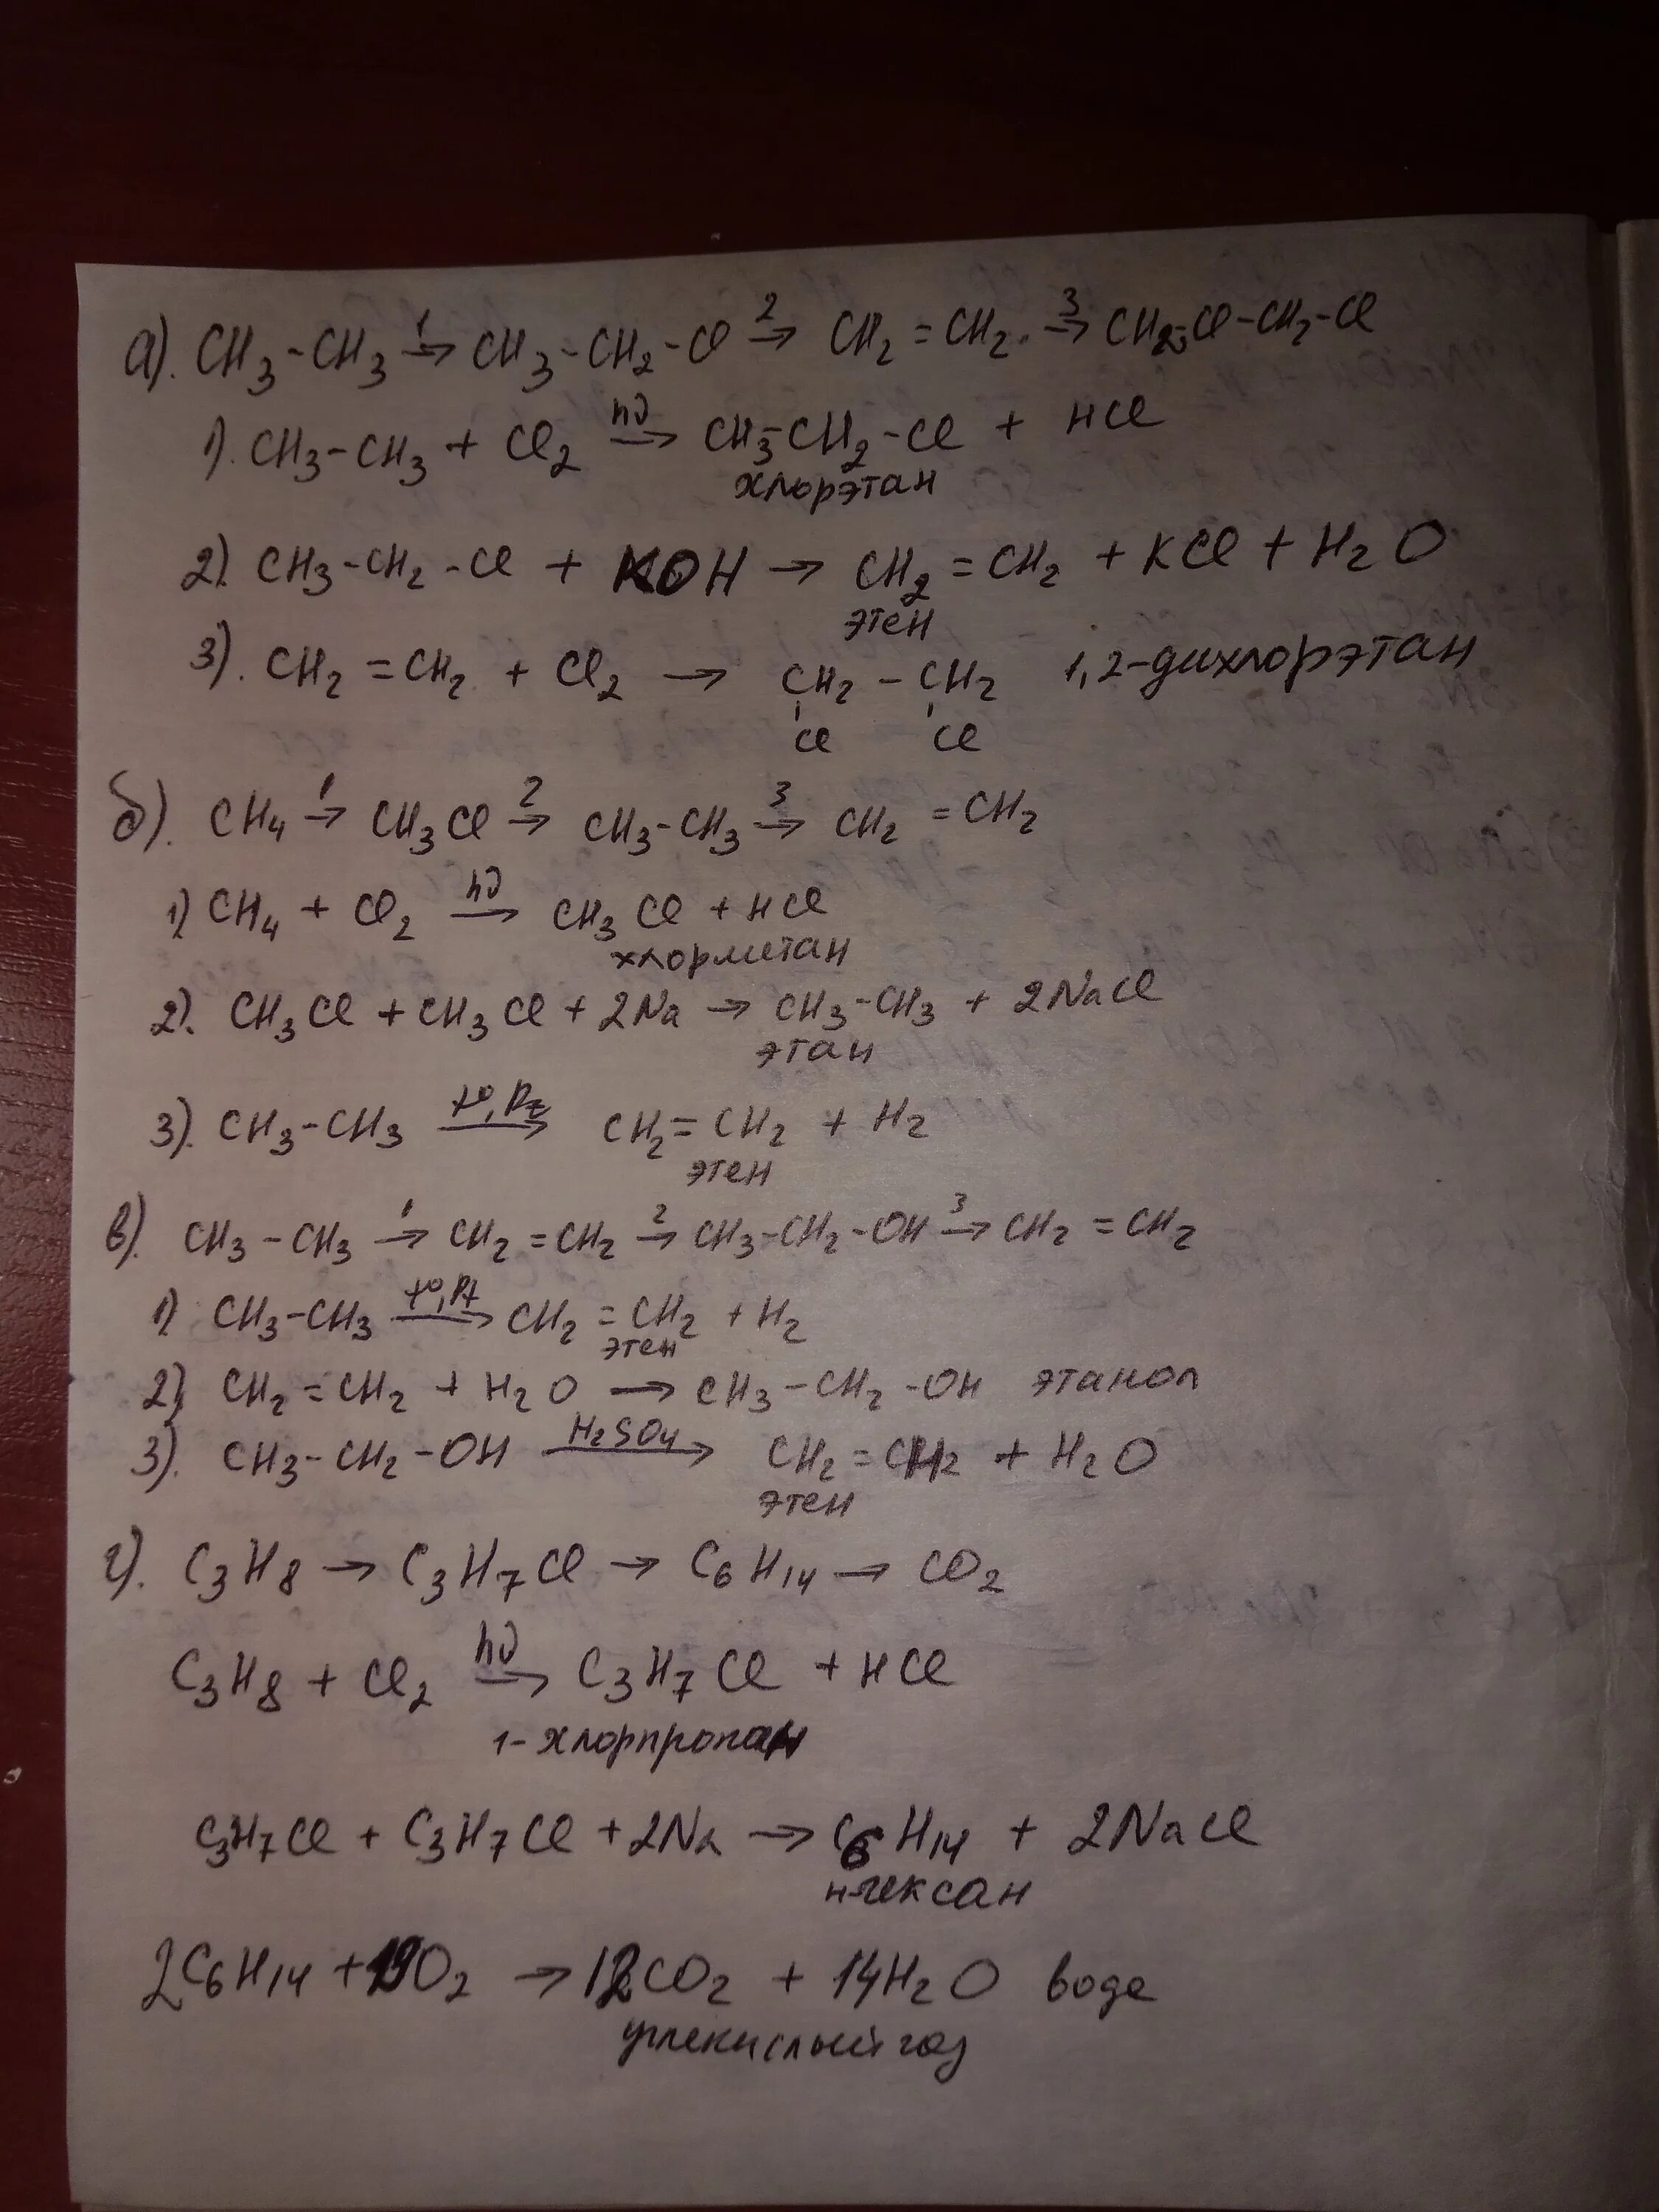 а). CH3-CH3 1→ CH3-CH2-Cl 2→ CH2=CH2. 3→ CH2-Cl-CH2-Cl
1). CH3-CH3 + Cl2 hν→ CH3-CH2-Cl + HCl
хлорэтан
2). CH3-CH2-Cl + KOH → CH2=CH2 + KCl + H2O
этен
3). CH2=CH2 + Cl2 → CH2-CH2 1,2-дихлорэтан
Cl Cl
б). CH4 1→ CH3Cl 2→ CH3-CH3 3→ CH2=CH2
1) CH4 + Cl2 hν→ CH3Cl + HCl
хлорметан
2). CH3Cl + CH3Cl + 2Na → CH3-CH3 + 2NaCl
этан
3). CH3-CH3 t°, Pt→ CH2=CH2 + H2
этен
в). CH3-CH3 1→ CH2=CH2 2→ CH3-CH2-OH 3→ CH2=CH2
1) CH3-CH3 t°, Pt→ CH2=CH2 + H2
этен
2) CH2=CH2 + H2O → CH3-CH2-OH этанол
3). CH3-CH2-OH H2SO4→ CH2=CH2 + H2O
этен
г). C3H8 → C3H7Cl → C6H14 → CO2
C3H8 + Cl2 hν→ C3H7Cl + HCl
1-хлорпропан
C3H7Cl + C3H7Cl + 2Na → C6H14 + 2NaCl
н-гексан
2C6H14 + 19O2 → 12CO2 + 14H2O вода
углекислый газ